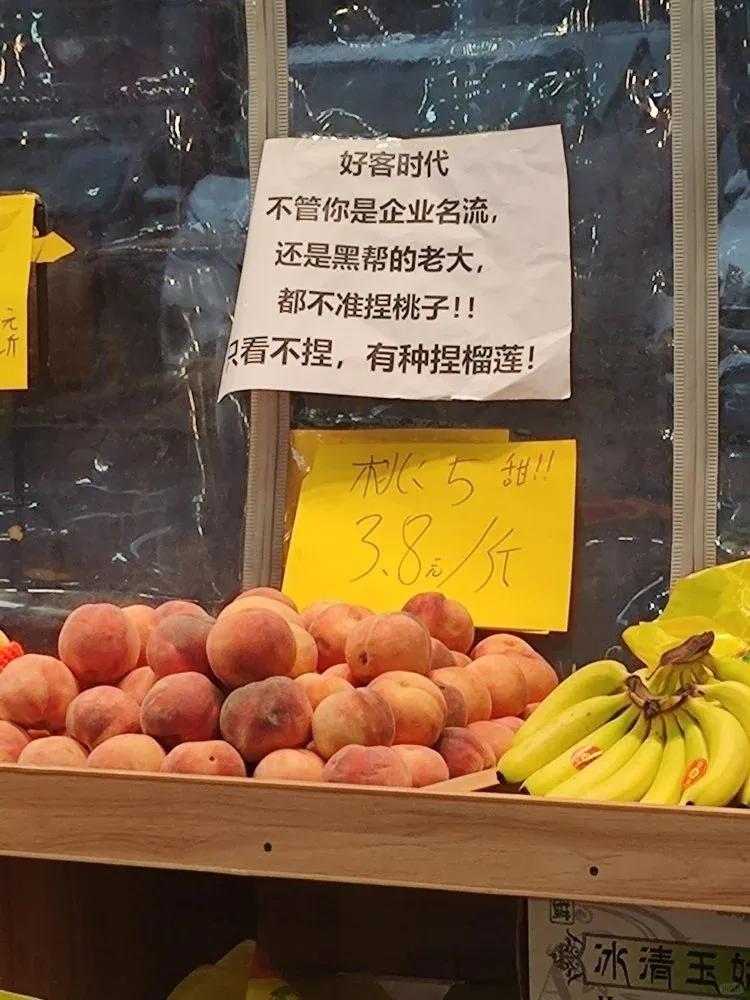 好客时代
不管你是企业名流,
还是黑帮的老大,
都不准捏桃子!!
只看不捏，有种捏榴莲!
元
斤
桃子 甜!!
3.8元/斤
冰清玉